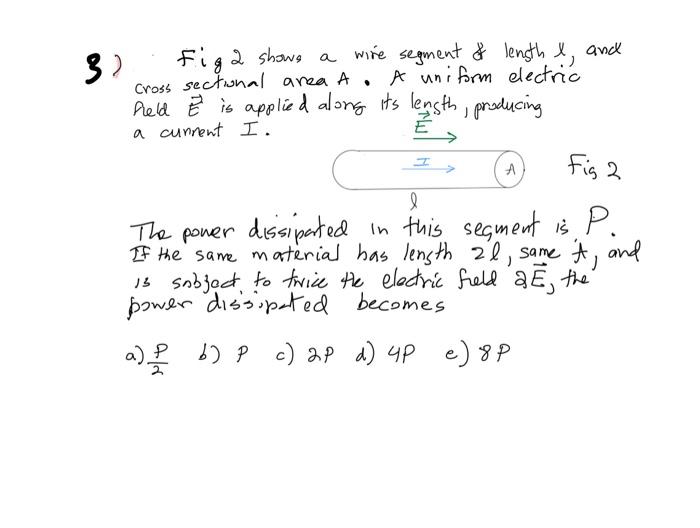 3) Fig 2 shows a wire segment of length l, and
cross sectional area A. A uniform electric
field E⃗ is applied along its length, producing
a current I.
E⃗
I
A
Fig 2
l
The power dissipated in this segment is P.
If the same material has length 2l, same A, and
is subject to twice the electric field 2E⃗, the
power dissipated becomes
a) P/2 b) P c) 2P d) 4P e) 8P